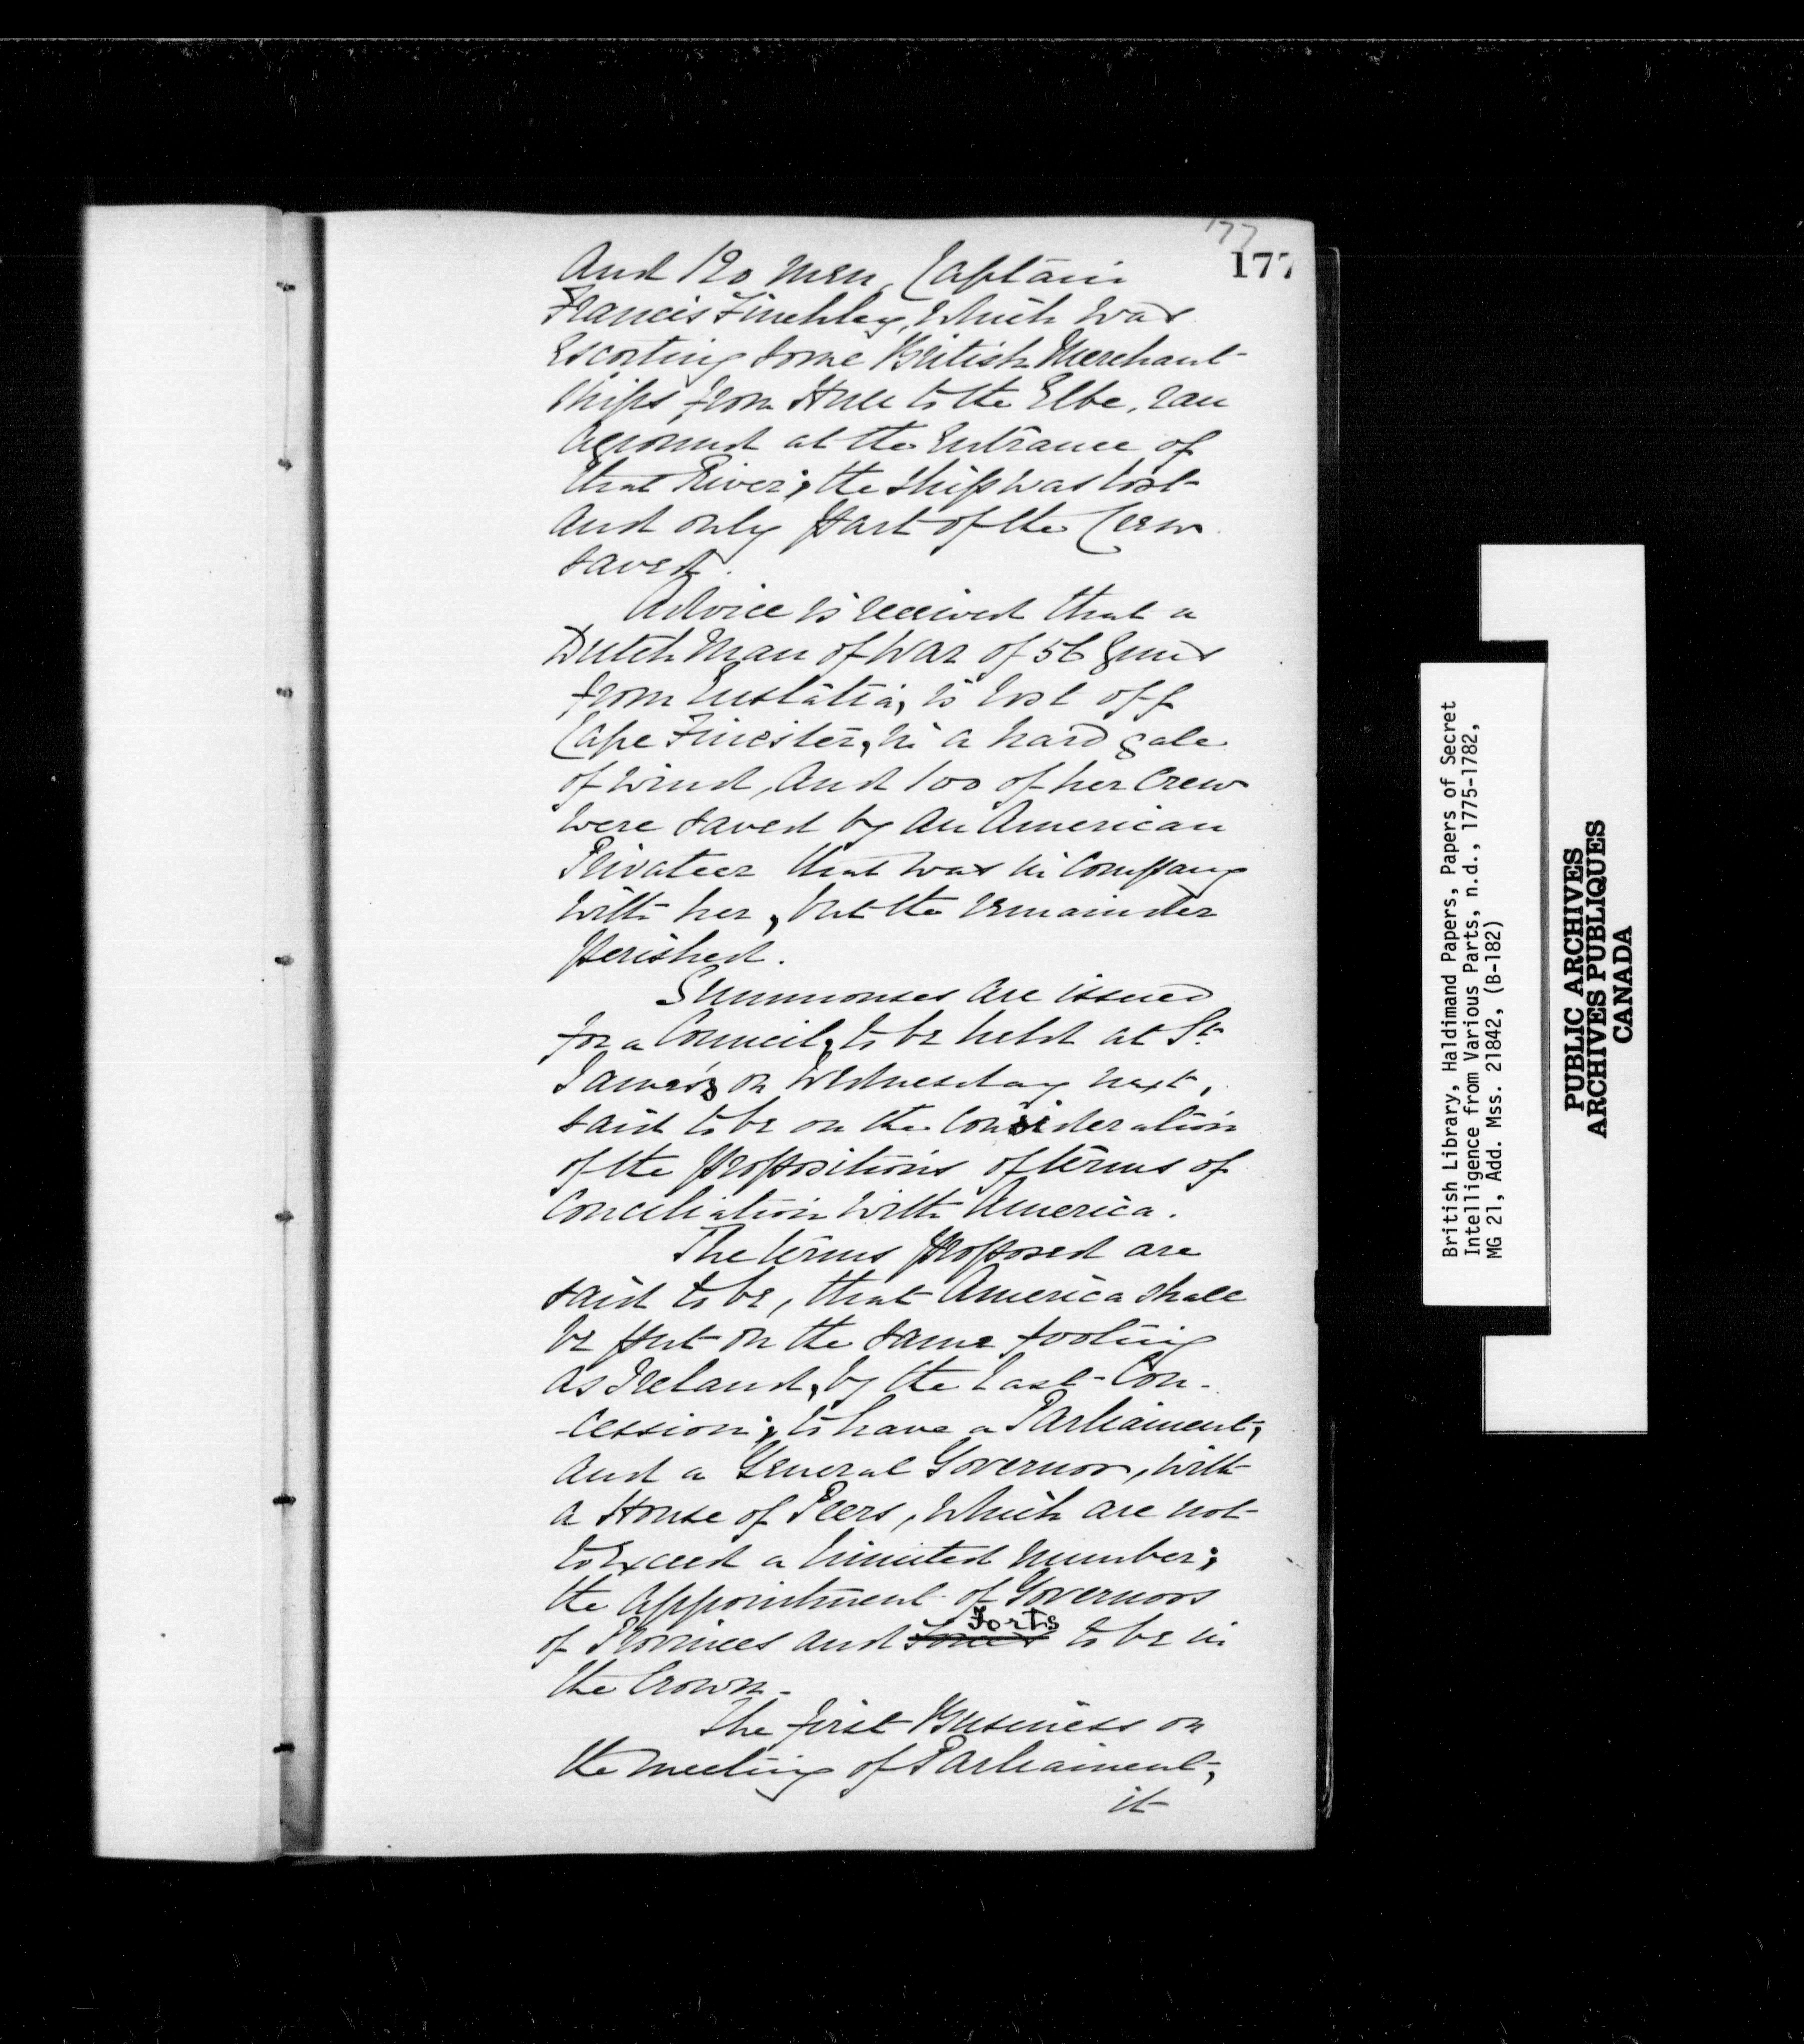 177
177
And 120 men, Captain
Francis Finchley, which was
Escorting some British Merchant
ships from Hull to the Elbe, ran
aground at the Entrance of
that River; the ship was lost
and only part of the Crew
saved.
Advice is received that a
Dutch Man of War of 56 Guns
from Eustatia, is lost off
Cape Finister, in a hard gale
of wind, and 100 of her Crew
were saved by an American
Privateer that was in Company
with her, but the remainder
perished.
Summonses are issued
for a Council, to be held at St
James's on Wednesday next,
said to be on the consideration
of the propositions of terms of
Conciliation with America.
The terms proposed are
said to be, that America shall
be put on the same footing
as Ireland, by the last Con-
-cession; to have a Parliament,
and a General Governor, with
a House of Peers, which are not
to Exceed a limited number;
the appointment of Governors
of Provinces and Forts to be in
the Crown.
The first Business on
the meeting of Parliament,
it
British Library, Haldimand Papers, Papers of Secret
Intelligence from Various Parts, n.d., 1775-1782,
MG 21, Add. Mss. 21842, (B-182)
PUBLIC ARCHIVES
ARCHIVES PUBLIQUES
CANADA